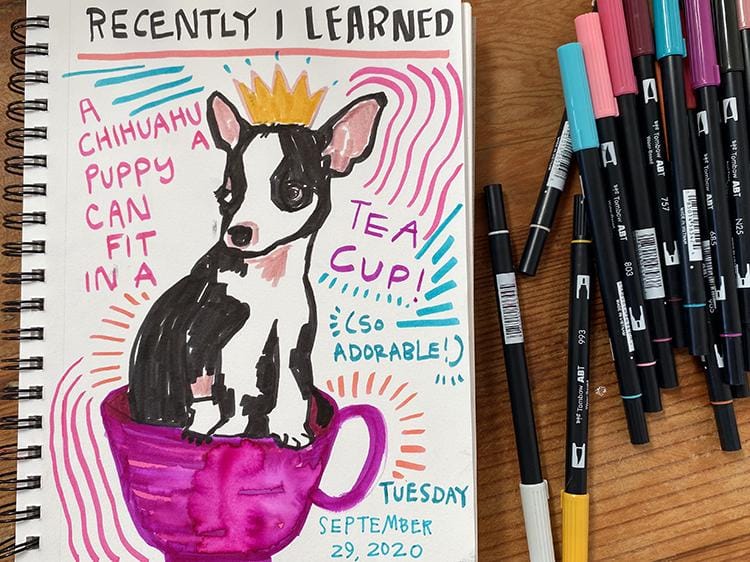 RECENTLY I LEARNED
A
CHIHUAHUA
PUPPY
CAN
FIT
IN A
TEA
CUP!
(SO
ADORABLE!)
TUESDAY
SEPTEMBER
29, 2020
Tombow ABT
993
Tombow ABT
803
Tombow ABT
757
Tombow ABT
685
Tombow ABT
N25